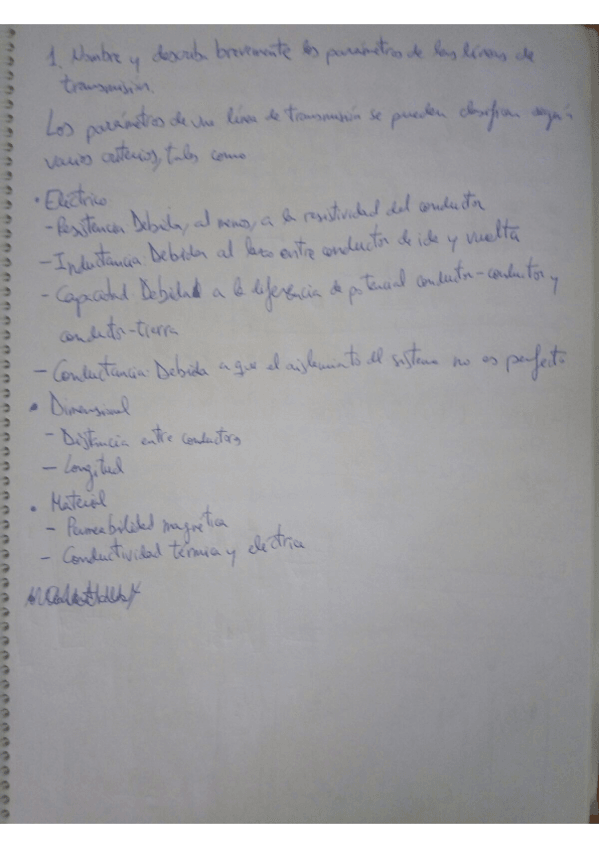 1. Nombre y describa brevemente los parámetros de las líneas de
transmisión.
Los parámetros de una línea de transmisión se pueden clasificar según
varios criterios, tales como
• Eléctrico
- Resistencia Debida, al menos, a la resistividad del conductor
- Inductancia: Debida al lazo entre conductor de ida y vuelta
- Capacidad: Debida a la diferencia de potencial conductor-conductor y
conductor-tierra
- Conductancia: Debida a que el aislamiento del sistema no es perfecto
• Dimensional
- Distancia entre conductores
- Longitud
• Material
- Permeabilidad magnética
- Conductividad térmica y eléctrica